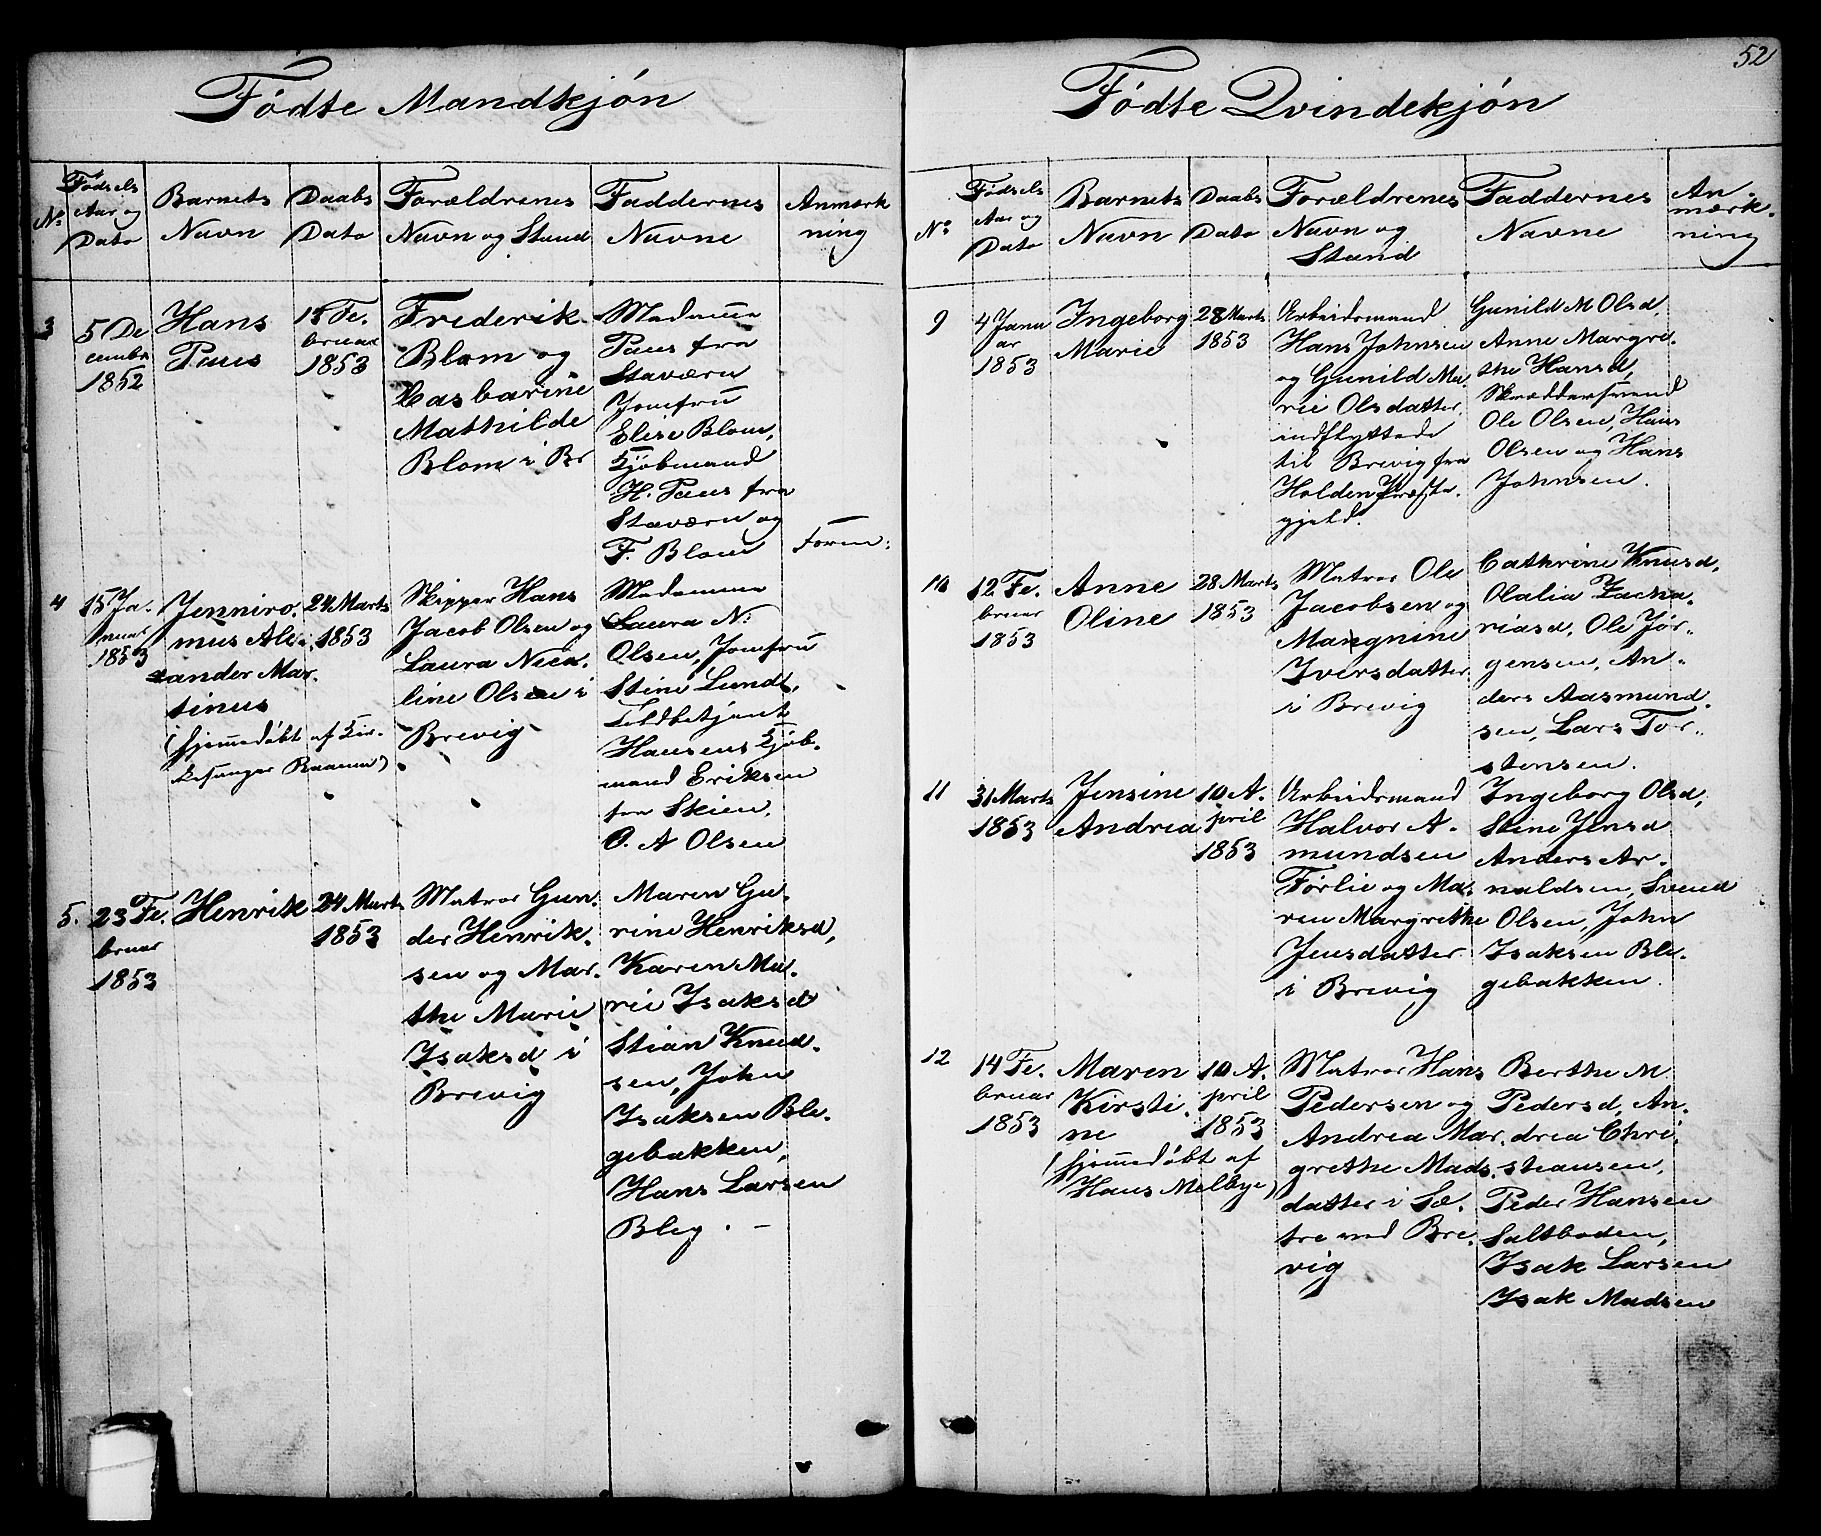 Fødte Mandkjøn
No
Fødsels
Aar og
Dato
Barnets
Navn
Daabs
Dato
Forældrenes
Navn og Stand
Faddernes
Navne
Anmærk
ning
3
5 De
cembr
1852
Hans
Paus
Fe.
bruar
1853
Frederik
Blom og
Casbarine
Mathilde
Blom i Br
Madamme
Paus fra
Staværn
Jomfru
Elise Blom,
Kjøbmand
H. Paus fra
Staværn og
F. Blom
4
15 Ja.
nuar
1853
Jenniro.
mus Ale
xander Mar.
tinus
(hjemmedøbt af Kir.
kesanger Raanum)
24 Marts
1853
Skipper Hans
Jacob Olsen og
Laura Nico.
line Olsen i
Brevig
Madamme
Laura N:
Olsen, Jomfru
Stine Lundt,
Toldbetjent
Hansens Kjøb.
mand Eriksen
fra Skien,
O. A Olsen
5.
23 Fe.
bruar
1853
Henrik
24 Marts
1853
Matros Gun.
der Henrik.
sen og Mar.
the Marie
Isaksd i
Brevig
Maren Gu.
rine Henriksd,
Karen Ma.
rie Isaksd
Stian Knud.
sen, John
Isaksen Ble.
gebakken,
Hans Larsen
Bleg. –
52
Fødte Qvindekjøn
No
Fødsels
Aar og
Dato
Barnets
Navn
Daabs
Dato
Forældrenes
Navn og
Stand
Faddernes
Navne
An-
mærk-
ning
9
4 Janu
ar
1853
Ingeborg
Marie
28 Marts
1853
Arbeidsmand
Hans Johnsen
og Gunild Ma.
rie Olsdatter,
indflyttede
til Brevig fra
Holden Præste.
gjeld.
Gunild M Olsd,
Anne Margre.
the Hansd,
Skræddersvend
Ole Olsen, Hans
Olsen og Hans
Johnsen.
10
12 Fe.
bruar
1853
Anne
Oline
28 Marts
1853
Matros Ole
Jacobsen og
Mangnine
Iversdatter
i Brevig
Cathrine Knusd,
Olalia Zacha.
riasd, Ole Jør-
gensen, An-
ders Aasmund.
sen, Lars Tor-
stensen.
11
31 Marts
1853
Jensine
Andrea
10 A.
pril
1853
Arbeidsmand
Halvor A.
mundsen
Førlie og Ma.
ren Margrethe
Jensdatter
i Brevig
Ingeborg Olsd,
Stine Jensd
Anders Ar.
naldsen, Svend
Olsen, John
Isaksen Ble.
gebakken.
12
14 Fe.
bruar
1853
Maren
Kirsti.
ne
(hjemmedøbt af
Hans Melbye)
10 A.
pril
1853
Matros Hans
Pedersen og
Andrea Mar.
grethe Mads.
datter i Sæ.
tre ved Bre.
vig
Berthe M
Pedersd, An.
drea Chri.
stiansen,
Peder Hansen
Saltboden,
Isak Larsen
Isak Madsen